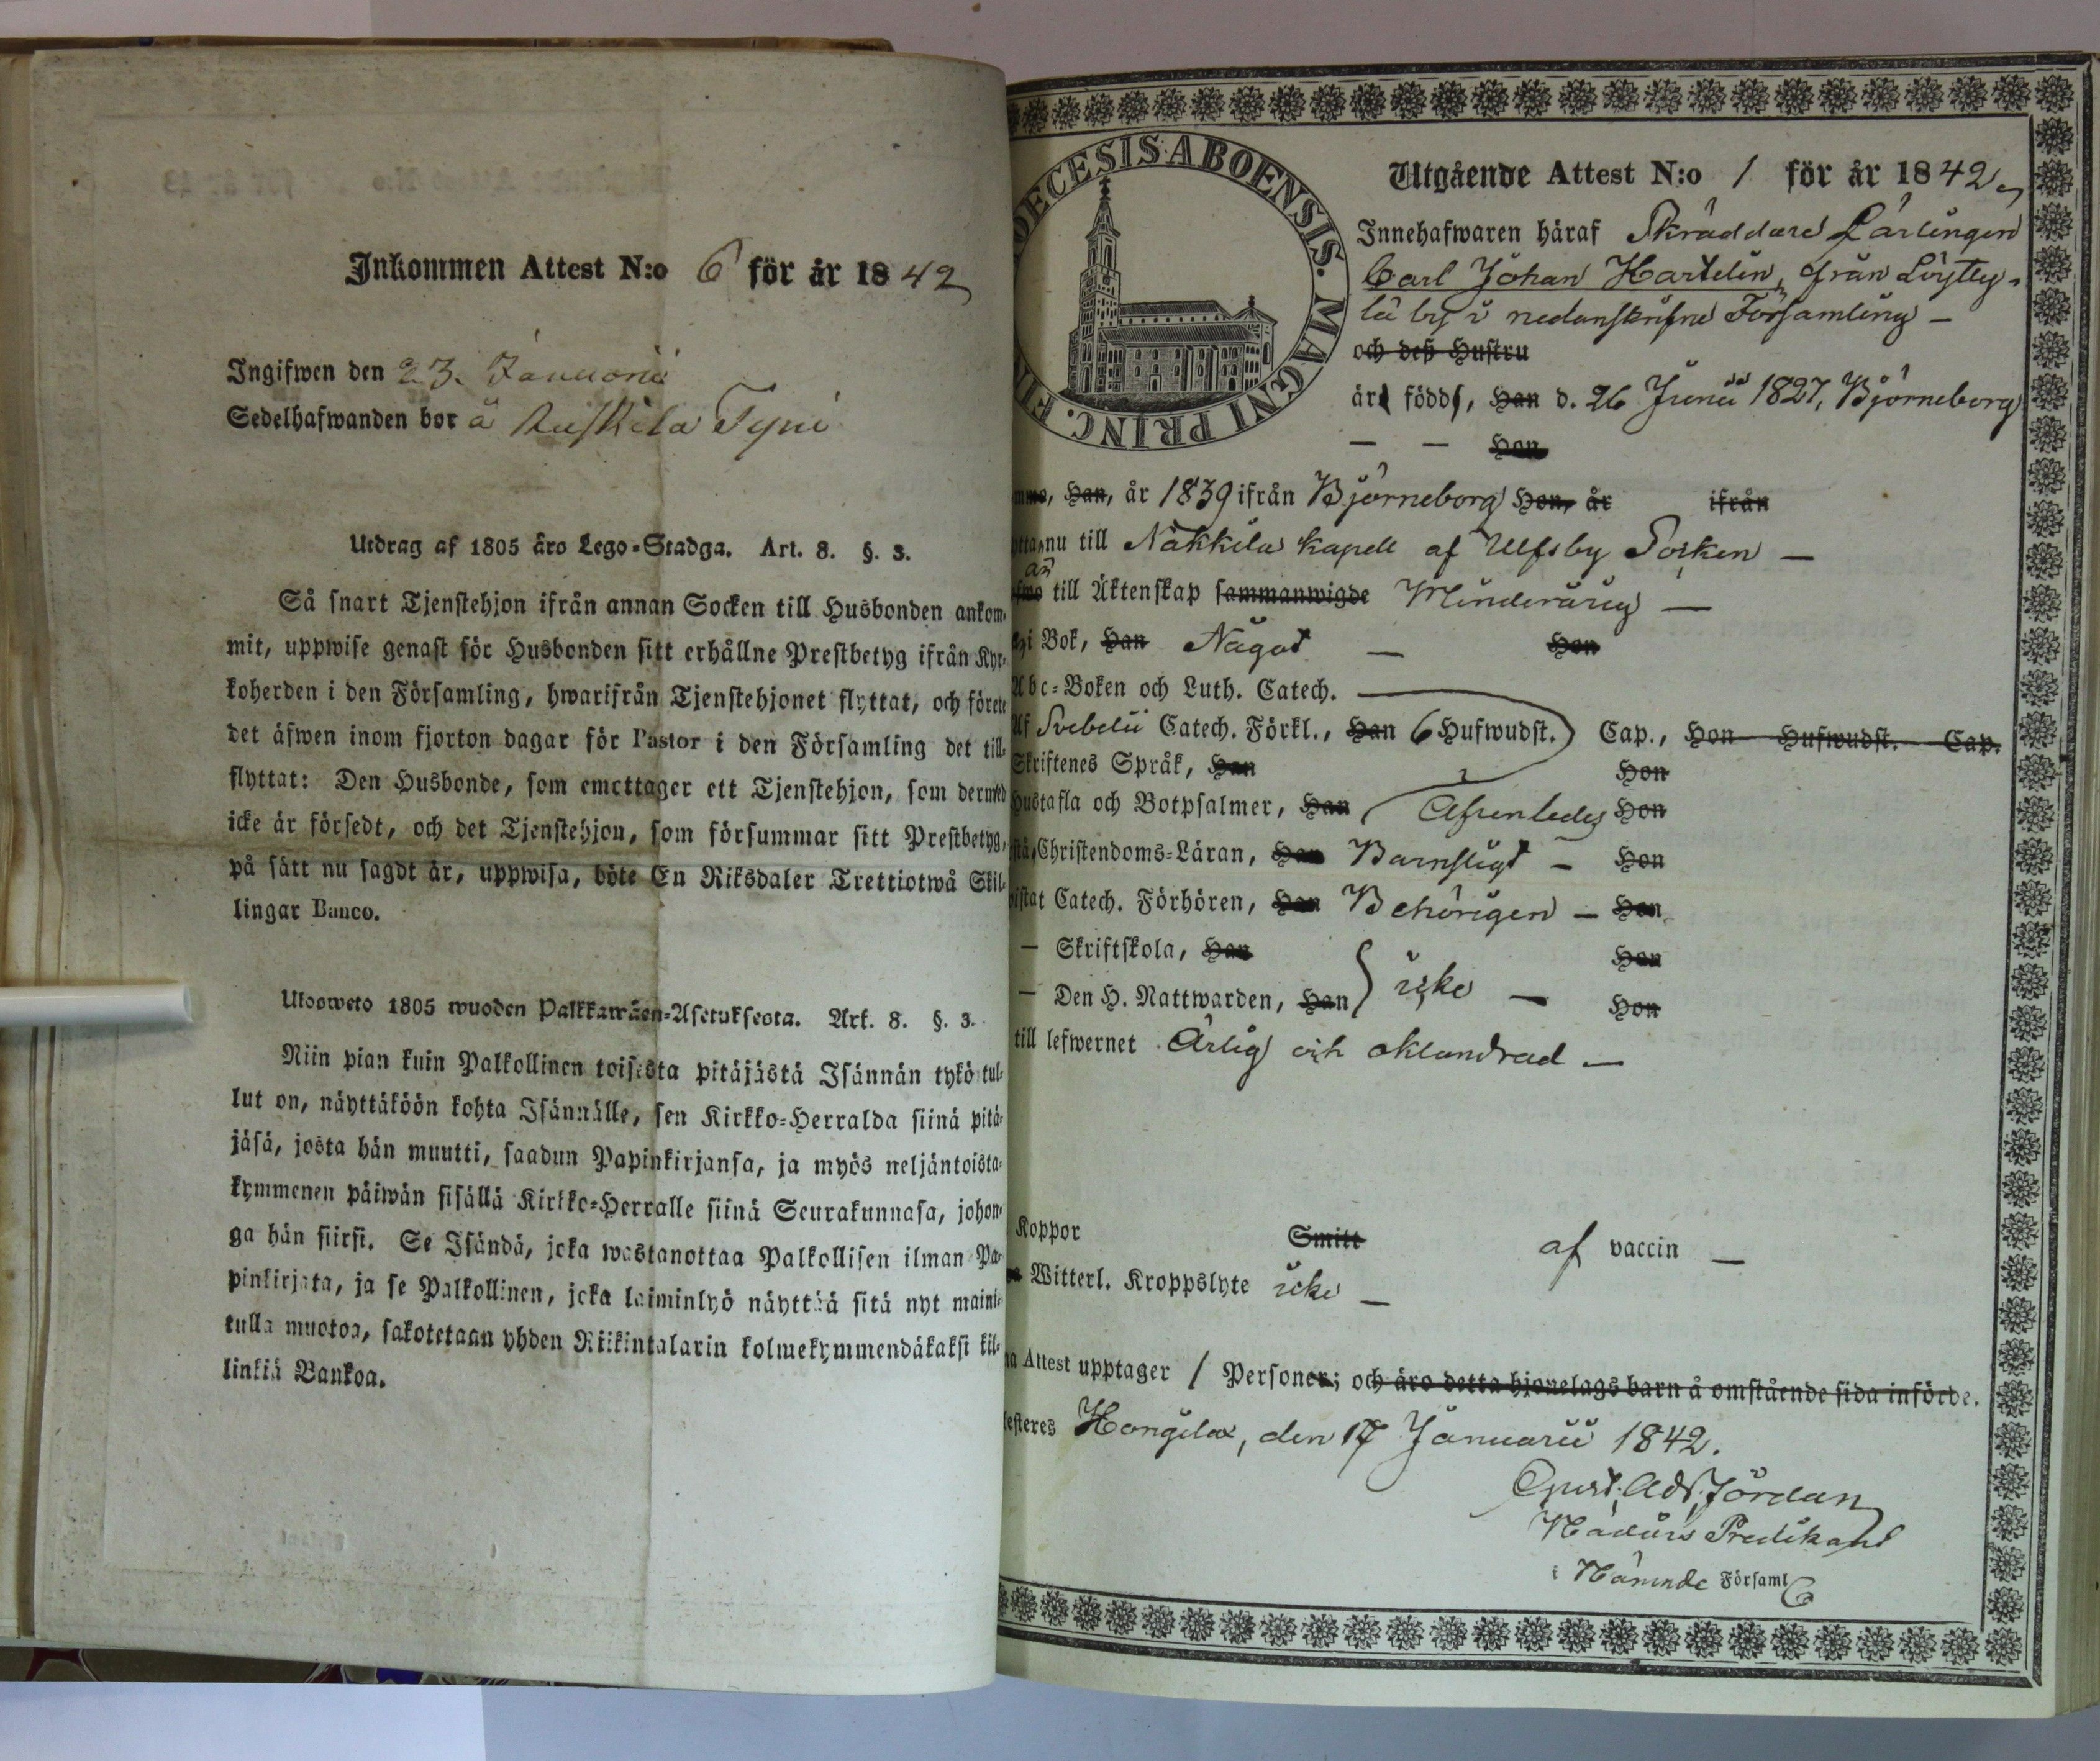 Inkommen Attest N:o 6 för år 1842
Ingifwen den 23. Januarii
Sedelhafwanden bor å Ruskila Tyni
Utdrag af 1805 åro Lego-Stadga. Art. 8. §. 3.
Så snart Tjenstehjon ifrån annan Socken till Husbonden ankom-
mit, uppwise genast för Husbonden sitt erhållne Prestbetyg ifrån Kyr-
koherden i den Församling, hwarifrån Tjenstehjonet flyttat, och förete
det äfwen inom fjorton dagar för Pastor i den Församling det till-
flyttat: Den Husbonde, som emottager ett Tjenstehjon, som dermed
icke är försedt, och det Tjenstehjon, som försummar sitt Prestbetyg,
på sätt nu sagdt är, uppwisa, böte En Riksdaler Trettiotwå Skil-
lingar Banco.
Ulosweto 1805 wuoden Palkkawäen-Asetuksesta. Art. 8. §. 3.
Niin pian kuin Palkollinen toisesta pitäjästä Isännän tykö tul-
lut on, näyttäköön kohta Isännälle, sen Kirkko-Herralda siinä pitä-
jäsä, josta hän muutti, saadun Papinkirjansa, ja myös neljäntoista-
kymmenen päiwän sisällä Kirkko-Herralle siinä Seurakunnasa, johon-
ga hän siirsi. Se Isändä, joka wastanottaa Palkollisen ilman Pa-
pinkirjata, ja se Palkollinen, joka laiminlyö näyttää sitä nyt maini-
tulla muotoa, sakotetaan yhden Riikintalarin kolmekymmendäkaksi kil-
linkiä Bankoa.
DECESIS ABOENSIS. MAGNI PRINC. FI
Utgående Attest N:o 1 för år 1842
Innehafwaren häraf Skräddare Lärlingen
Carl Johan Hartelin, från Löytty-
lä by i nedanskrifne Församling —
och deß Hustru
är född, Han d. 26 Junii 1827, Björneborg
— — Hon
Han, år 1839 ifrån Björneborg Hon, år ifrån
nu till Nakkila kapell af Ulfsby Socken —
till Äktenskap sammanwigde Minderårig —
i Bok, Han Något — Hon
Abc-Boken och Luth. Catech. —
Af Svebelii Catech. Förkl., Han 6 Hufwudst. Cap., Hon Hufwudst. Cap.
Skriftenes Språk, Han Hon
Hustafla och Botpsalmer, Han Äfvenledes Hon
Christendoms-Läran, Han Barnsligt — Hon
Catech. Förhören, Han Behörigen — Hon
— Skriftskola, Han Hon
— Den H. Nattwarden, Han icke — Hon
till lefwernet Ärlig och oklandrad —
Koppor Smitt af vaccin —
Witterl. Kroppslyte icke —
Attest upptager 1 Personer; och äro detta hjonelags barn å omstående sida införde.
Hongila, den 17 Januarii 1842.
Gust. Ad. Jordan
Nådårs Predikant
i Nämnde Församl